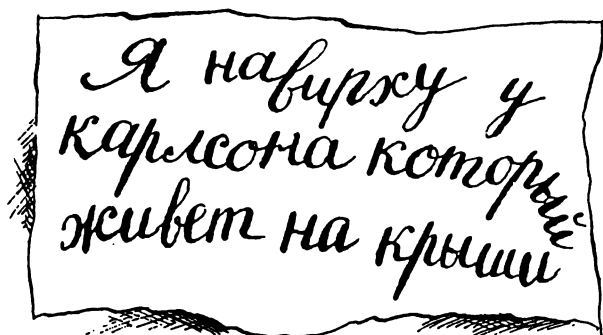 Я навирху у
карлсона который
живет на крыши